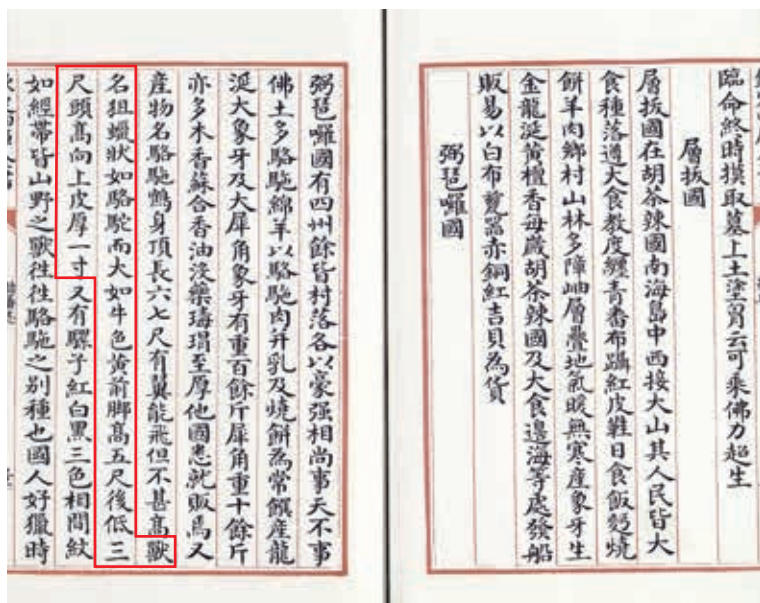 臨命終時摸取墓上土塗胷云可乘佛力超生
層拔國
層拔國在胡茶辣國南海島中西接大山其人民皆大
食種落遵大食教度纏青番布躡紅皮鞋日食飯麪燒
餅羊肉鄉村山林多障岫層疊地氣暖無寒產象牙生
金龍涎黃檀香每歲胡茶辣國及大食邊海等處發船
販易以白布甆器赤銅紅吉貝為貨
弼琶囉國
弼琶囉國有四州餘皆村落各以豪强相尚事天不事
佛土多駱駞綿羊以駱駞肉并乳及燒餅為常饌產龍
涎大象牙及大犀角象牙有重百餘斤犀角重十餘斤
亦多木香蘇合香油沒藥瑇瑁至厚他國悉就販焉又
產物名駱駞鶴身頂長六七尺有翼能飛但不甚高獸
名徂蠟狀如駱駝而大如牛色黃前脚高五尺後低三
尺頭高向上皮厚一寸又有騾子紅白黑三色相間紋
如經帶皆山野之獸徃徃駱駞之别種也國人好獵時